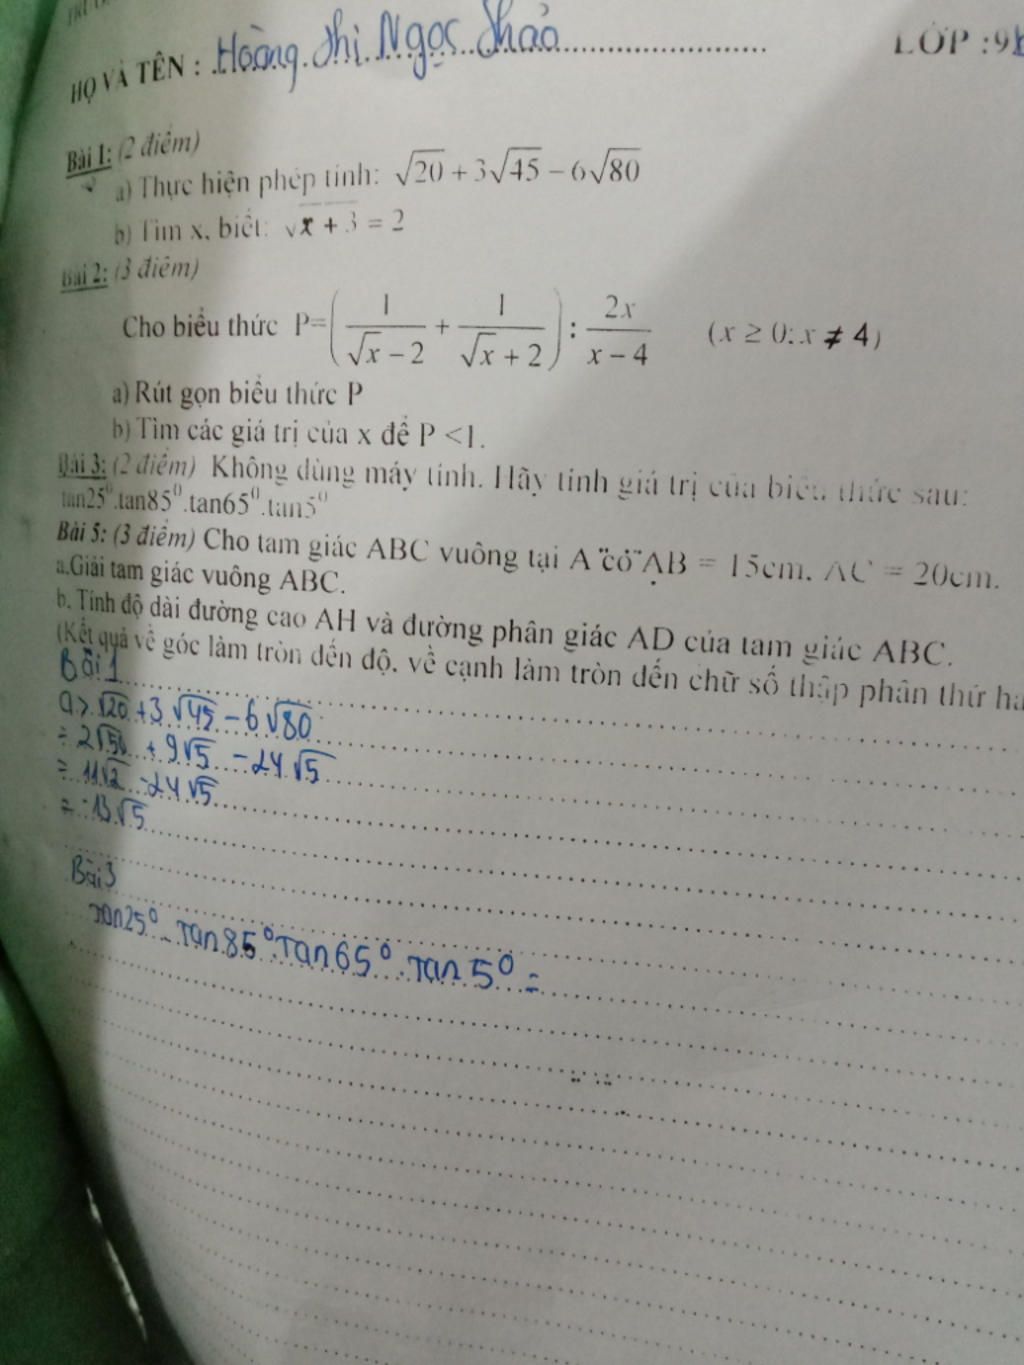 HỌ VÀ TÊN : Hoàng Thi Ngọc Thảo LỚP :9
Bài 1: (2 điểm)
a) Thực hiện phép tính: √20 + 3√45 − 6√80
b) Tìm x, biết: √x + 3 = 2
Bài 2: (3 điểm)
Cho biểu thức P=( 1/(√x − 2) + 1/(√x + 2) ) : 2x/(x − 4) (x ≥ 0; x ≠ 4)
a) Rút gọn biểu thức P
b) Tìm các giá trị của x để P <1.
Bài 3: (2 điểm) Không dùng máy tính. Hãy tính giá trị của biểu thức sau:
tan25⁰.tan85⁰.tan65⁰.tan5⁰
Bài 5: (3 điểm) Cho tam giác ABC vuông tại A có AB = 15cm. AC = 20cm.
a.Giải tam giác vuông ABC.
b. Tính độ dài đường cao AH và đường phân giác AD của tam giác ABC.
(Kết quả về góc làm tròn đến độ, về cạnh làm tròn đến chữ số thập phân thứ
Bài 1
a> √20 + 3√45 − 6√80
= 2√50 + 9√5 − 24√5
= 11√2 − 24√5
= −13√5
Bài 3
Tan25⁰ . Tan 85⁰ . Tan 65⁰ . Tan 5⁰ =